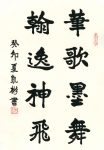 華歌墨舞
翰逸神飛
癸卯夏凱彬書